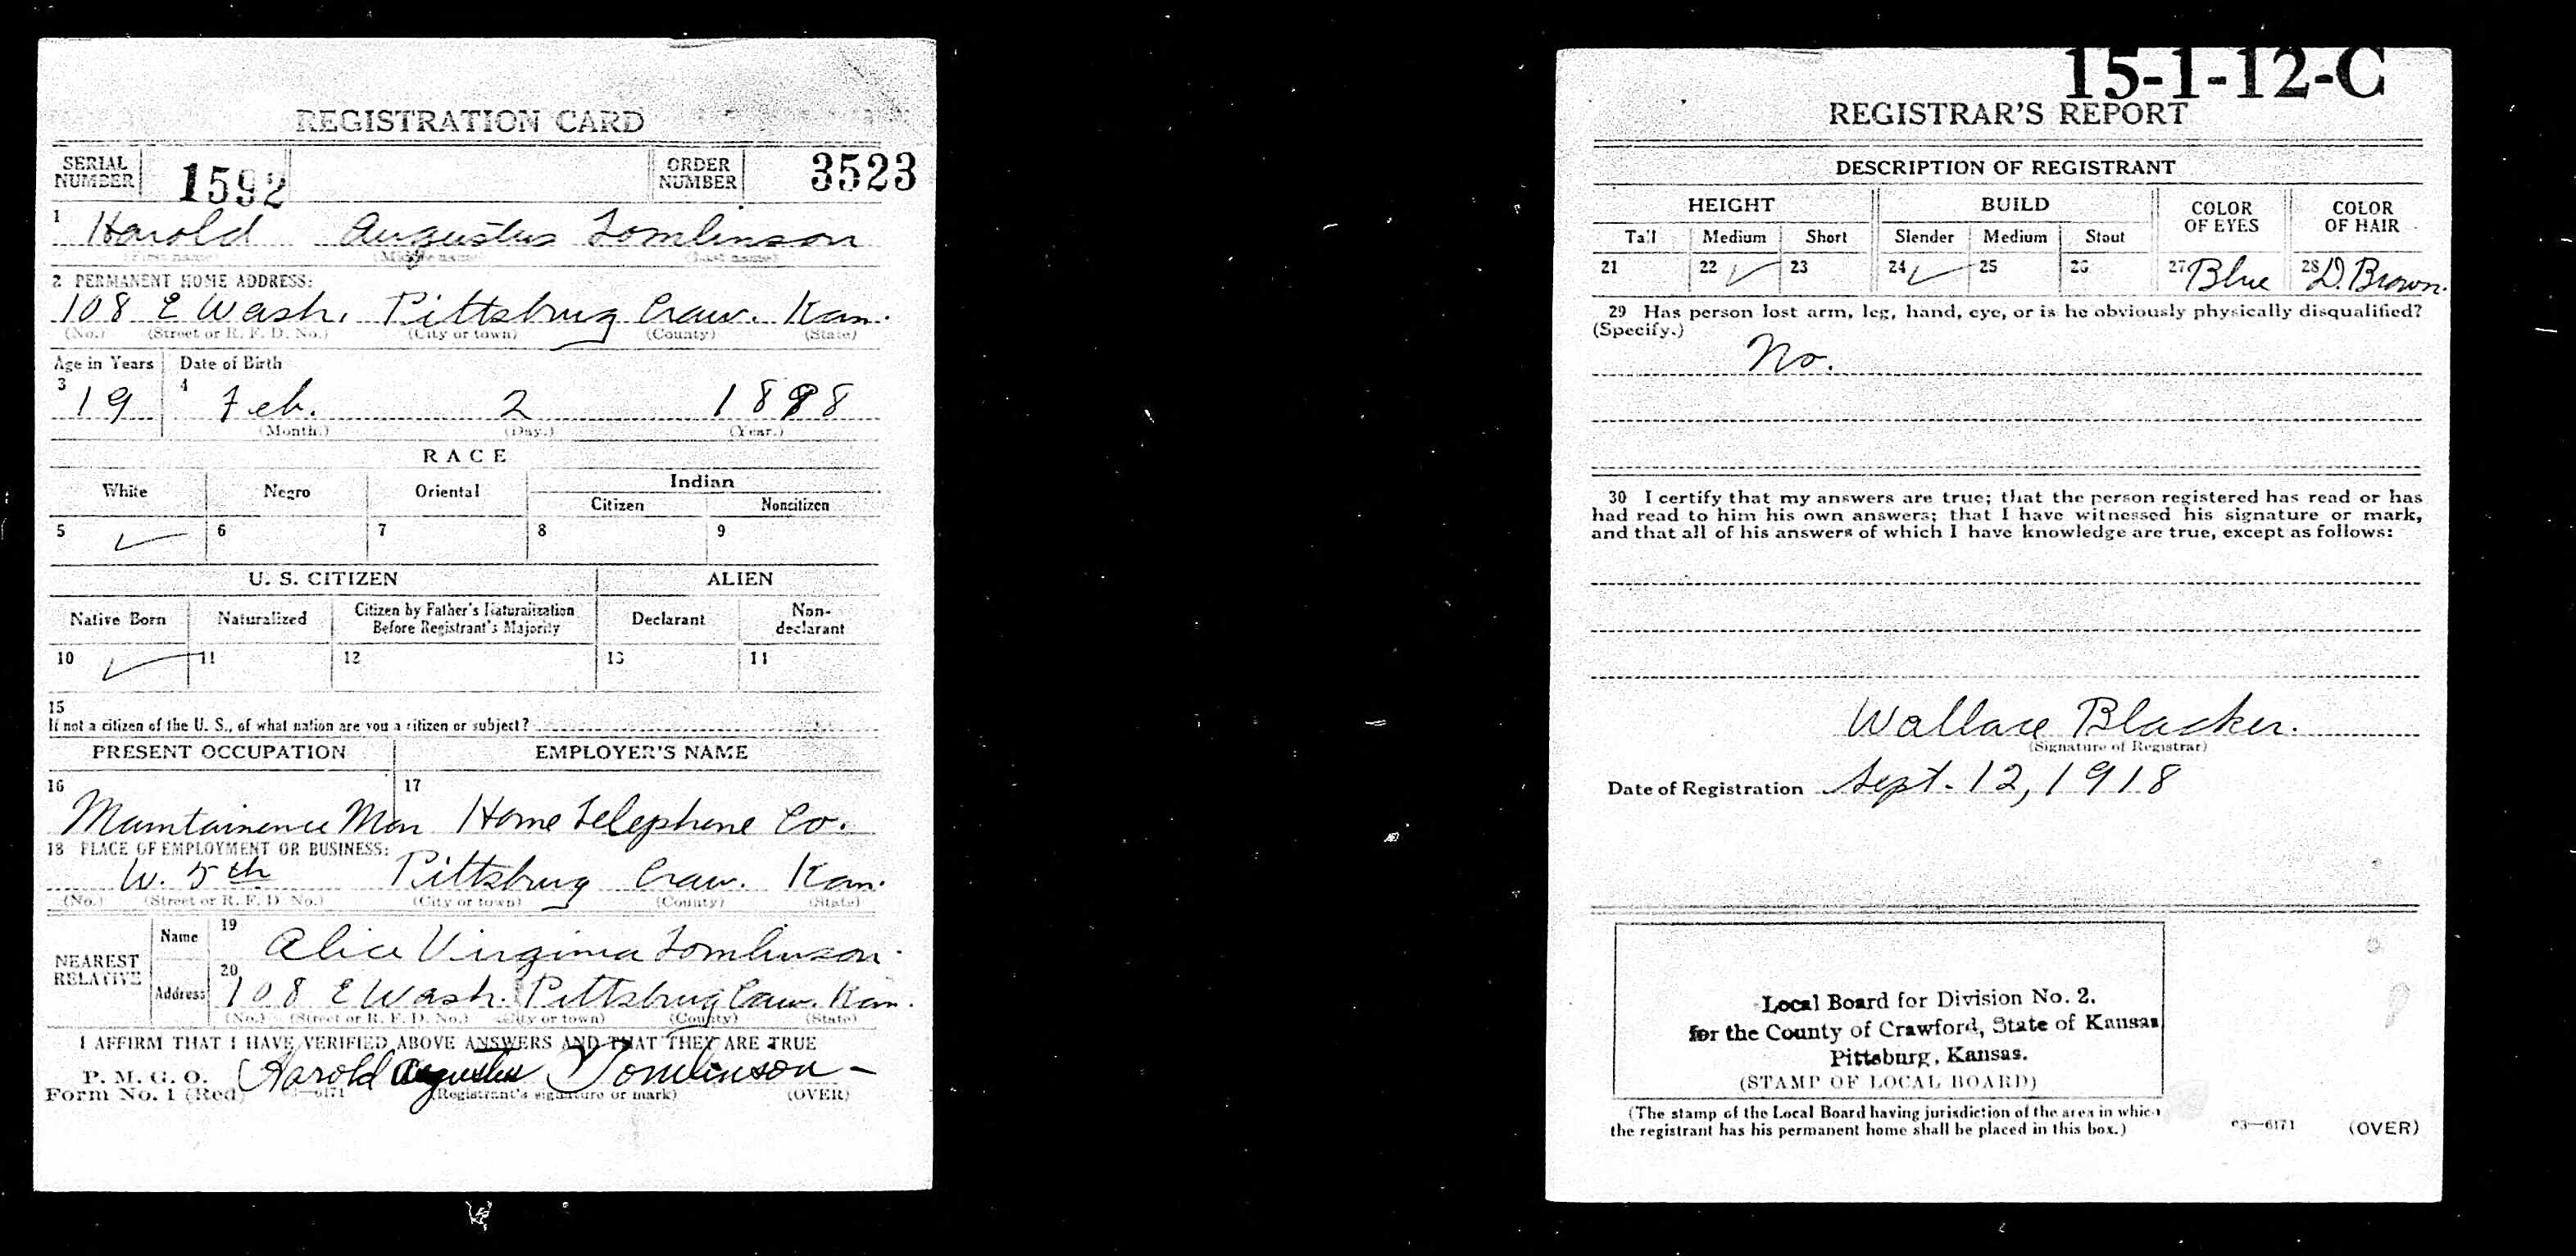 REGISTRATION CARD
SERIAL NUMBER 1592 ORDER NUMBER 3523
1 Harold Augustus Tomlinson
(First name) (Middle name) (Last name)
2 PERMANENT HOME ADDRESS:
108 E Wash. Pittsburg Craw. Kan.
(No.) (Street or R. F. D. No.) (City or town) (County) (State)
Age in Years Date of Birth
3 19 4 Feb. 2 1898
(Month.) (Day.) (Year.)
RACE
White Negro Oriental Indian
Citizen Noncitizen
5 ✓ 6 7 8 9
U. S. CITIZEN ALIEN
Native Born Naturalized Citizen by Father's Naturalization Before Registrant's Majority Declarant Non-declarant
10 ✓ 11 12 13 14
15
If not a citizen of the U. S., of what nation are you a citizen or subject?
PRESENT OCCUPATION EMPLOYER'S NAME
16 17
Maintainence Man Home Telephone Co.
18 PLACE OF EMPLOYMENT OR BUSINESS:
W. 5th Pittsburg Craw. Kan.
(No.) (Street or R. F. D. No.) (City or town) (County) (State)
NEAREST RELATIVE Name 19 Alice Virginia Tomlinson.
Address 20 108 E Wash. Pittsburg Caw. Kan.
(No.) (Street or R. F. D. No.) (City or town) (County) (State)
I AFFIRM THAT I HAVE VERIFIED ABOVE ANSWERS AND THAT THEY ARE TRUE
P. M. G. O.
Form No. 1 (Red) Harold Augustus Tomlinson -
(Registrant's signature or mark) (OVER)
15-1-12-C
REGISTRAR'S REPORT
DESCRIPTION OF REGISTRANT
HEIGHT BUILD COLOR OF EYES COLOR OF HAIR
Tall Medium Short Slender Medium Stout
21 22 ✓ 23 24 ✓ 25 26 27 Blue 28 D. Brown.
29 Has person lost arm, leg, hand, eye, or is he obviously physically disqualified?
(Specify.)
No.
30 I certify that my answers are true; that the person registered has read or has
had read to him his own answers; that I have witnessed his signature or mark,
and that all of his answers of which I have knowledge are true, except as follows:
Wallace Blacker.
(Signature of Registrar)
Date of Registration Sept. 12, 1918
Local Board for Division No. 2.
for the County of Crawford, State of Kansas
Pittsburg, Kansas.
(STAMP OF LOCAL BOARD)
(The stamp of the Local Board having jurisdiction of the area in which
the registrant has his permanent home shall be placed in this box.)
03—6171 (OVER)